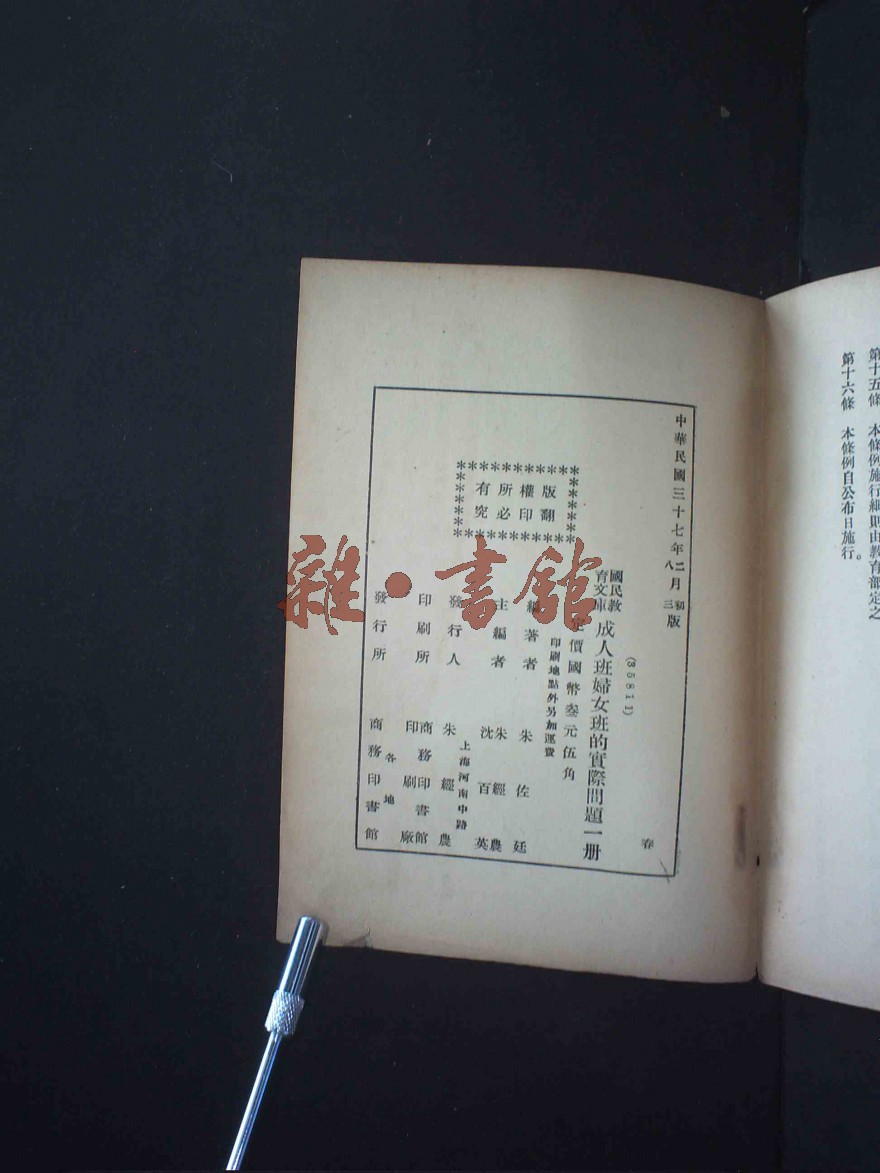 第十五條　本條例施行細則由教育部定之
第十六條　本條例自公布日施行。
中華民國三十七年二月初版
八　三
春
(35811)
國民教育文庫
成人班婦女班的實際問題一册
定價國幣叁元伍角
印刷地點外另加運費
版權所有
翻印必究
編著者　朱佐廷
主編者　朱經農
沈百英
上海河南中路
發行人　朱經農
印刷所　商務印書館
印刷廠
發行所　各地
商務印書館
雜·書館